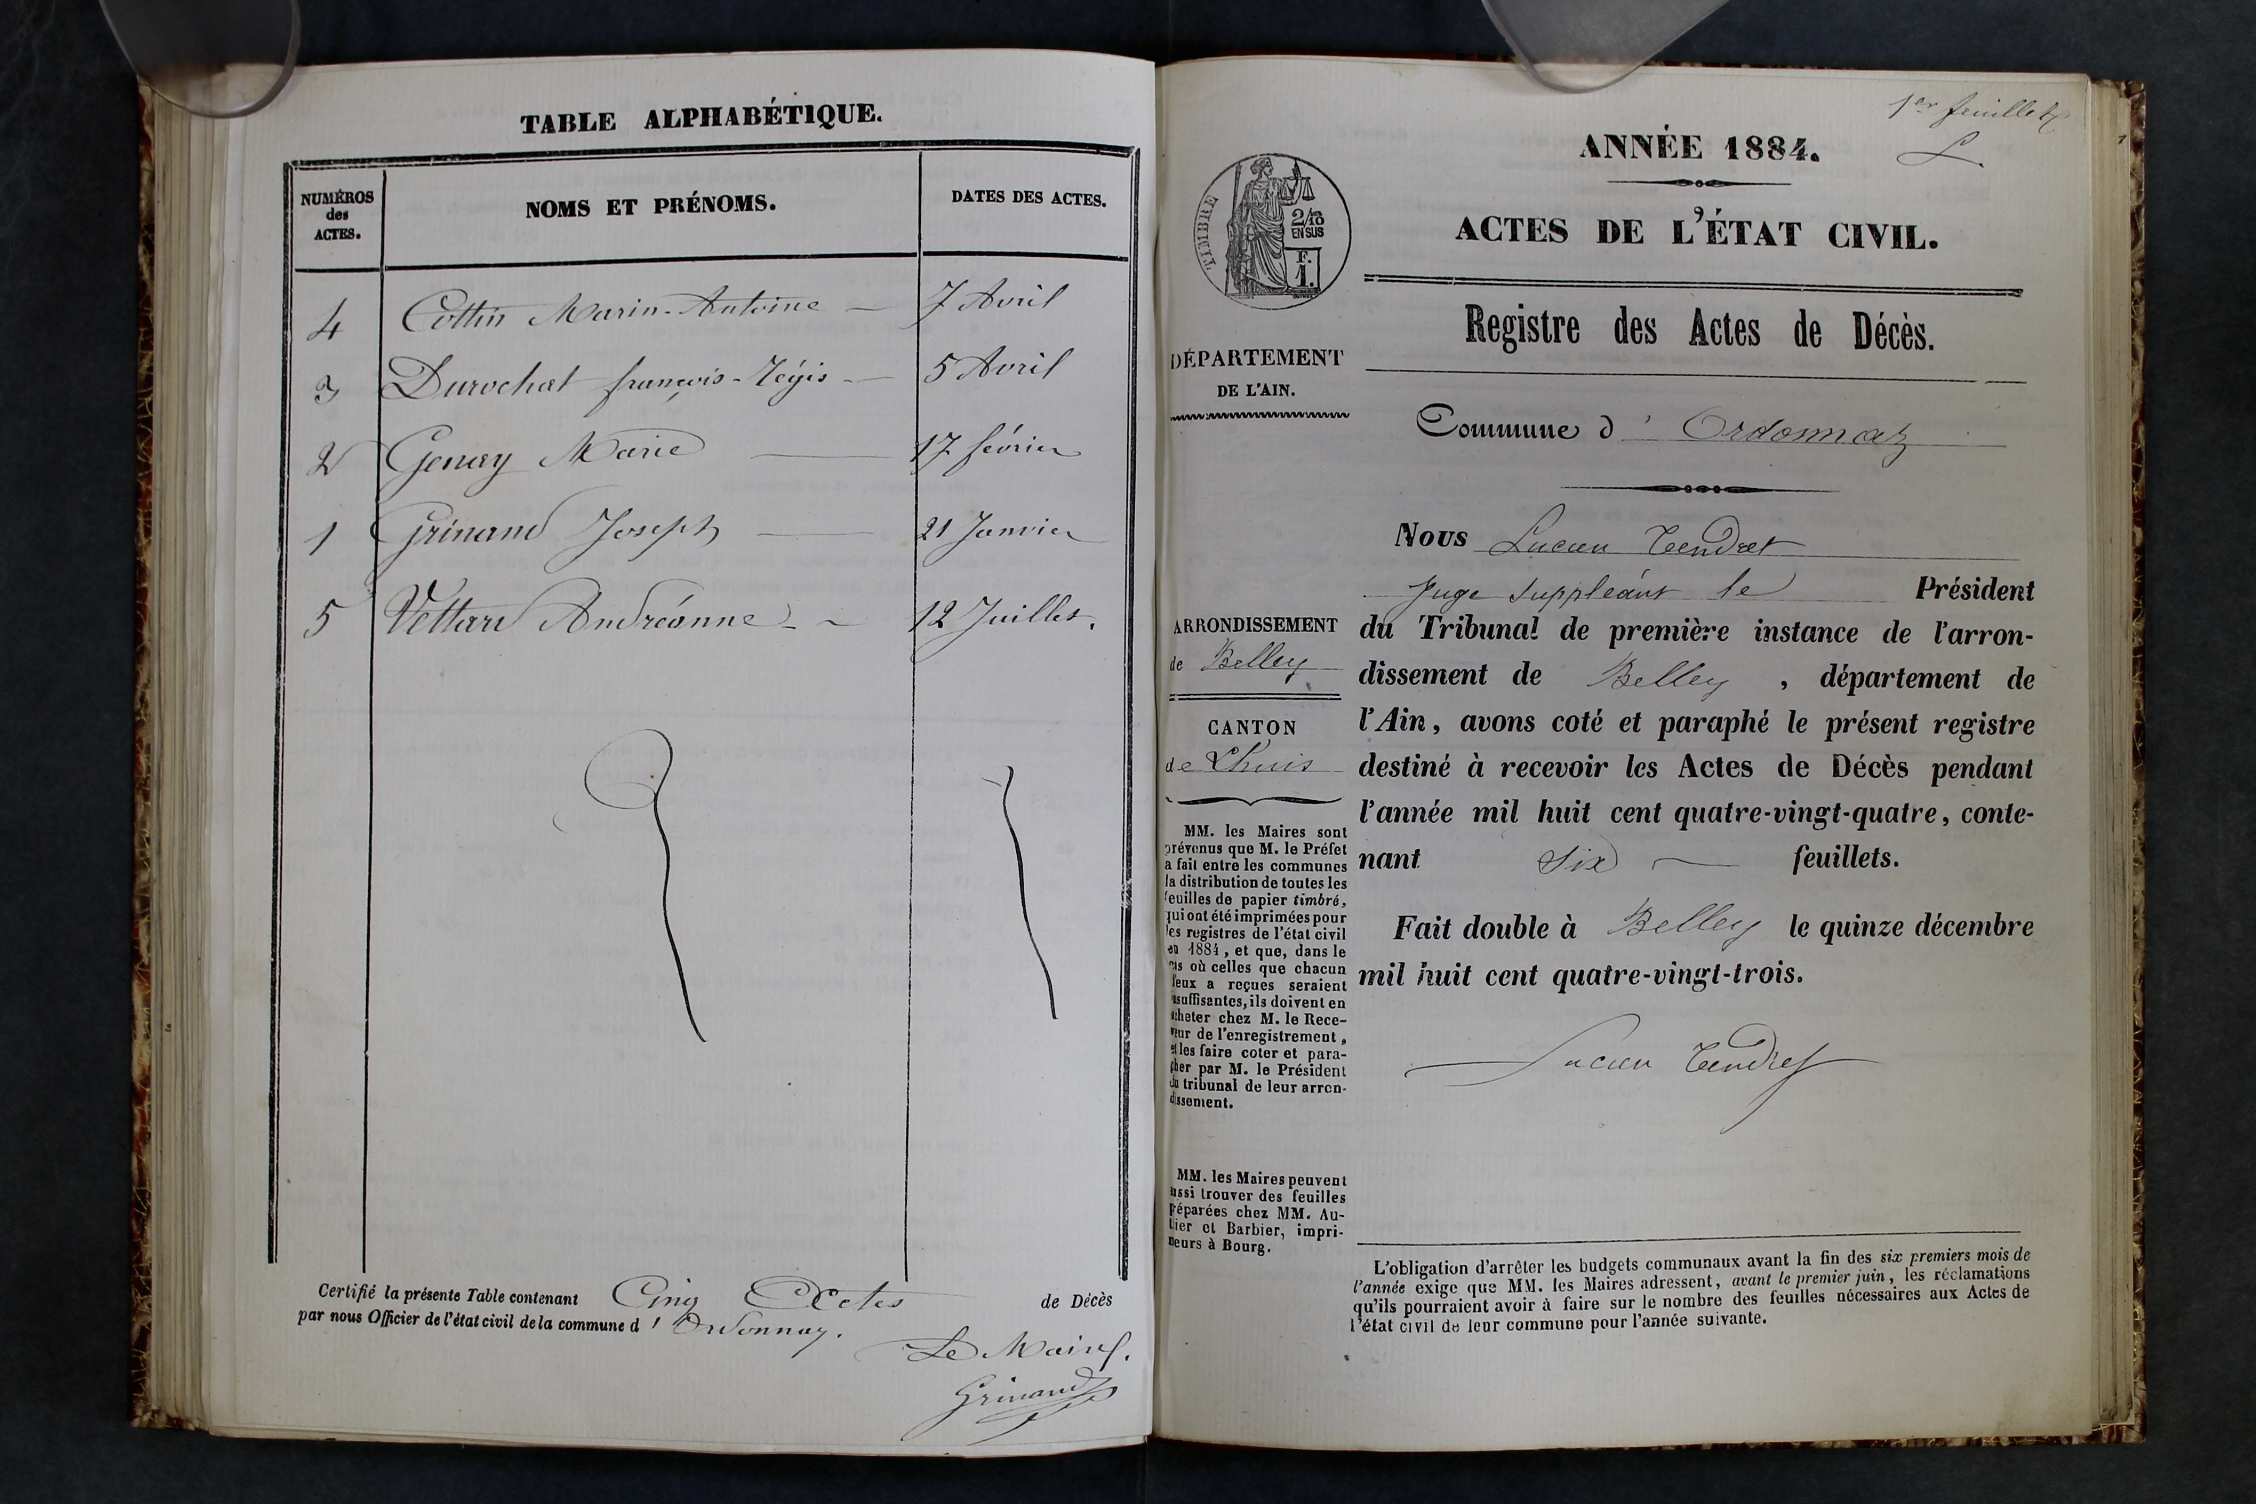 TABLE ALPHABÉTIQUE.
NUMÉROS des ACTES.
NOMS ET PRÉNOMS.
DATES DES ACTES.
4 Cottin Marin-Antoine — 7 Avril
3 Durochat françois-Régis — 5 Avril
2 Genay Marie — 17 février
1 Grinand Joseph — 21 Janvier
5 Vettard Andréanne - - 12 Juillet.
Certifié la présente Table contenant Cinq Actes de Décès
par nous Officier de l'état civil de la commune d' Ordonnaz.
Le Maire.
Grinand
1er feuillet
L.
ANNÉE 1884.
ACTES DE L'ÉTAT CIVIL.
TIMBRE
2/10
EN SUS
F.
1.
Registre des Actes de Décès.
DÉPARTEMENT
DE L'AIN.
Commune d' Ordonnaz
Nous Lucien Tendret
Juge suppléant le Président
du Tribunal de première instance de l'arron-
dissement de Belley, département de
l'Ain, avons coté et paraphé le présent registre
destiné à recevoir les Actes de Décès pendant
l'année mil huit cent quatre-vingt-quatre, conte-
nant six — feuillets.
Fait double à Belley le quinze décembre
mil huit cent quatre-vingt-trois.
Lucien Tendret
ARRONDISSEMENT
de Belley
CANTON
de Lhuis
MM. les Maires sont
prévenus que M. le Préfet
a fait entre les communes
la distribution de toutes les
feuilles de papier timbré,
qui ont été imprimées pour
les registres de l'état civil
en 1884, et que, dans le
cas où celles que chacun
d'eux a reçues seraient
insuffisantes, ils doivent en
acheter chez M. le Rece-
veur de l'enregistrement,
et les faire coter et para-
pher par M. le Président
du tribunal de leur arron-
dissement.
MM. les Maires peuvent
aussi trouver des feuilles
préparées chez MM. Au-
thier et Barbier, impri-
meurs à Bourg.
L'obligation d'arrêter les budgets communaux avant la fin des six premiers mois de
l'année exige que MM. les Maires adressent, avant le premier juin, les réclamations
qu'ils pourraient avoir à faire sur le nombre des feuilles nécessaires aux Actes de
l'état civil de leur commune pour l'année suivante.